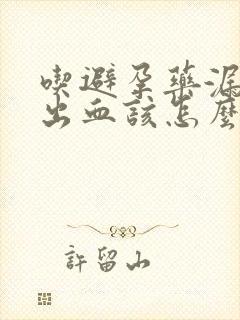 喫避孕藥漏
出血該怎麼
許留山